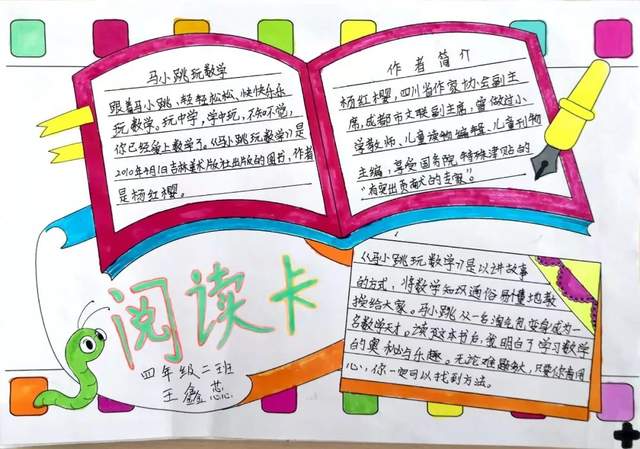 马小跳玩数学
跟着马小跳、轻轻松松、快快乐乐
玩数学。玩中学,学中玩,不知不觉,
你已经爱上数学了。《马小跳玩数学》是
2010年9月1日吉林美术版社出版的图书,作者
是杨红樱。
作者简介
杨红樱,四川省作家协会副主
席,成都市文联副主席,曾做过小
学教师、儿童读物编辑、儿童刊物
主编,享受国务院特殊津贴的
“有突出贡献的专家”。
阅读卡
四年级二班
王鑫蕊
《马小跳玩数学》是以讲故事
的方式,将数学知识通俗易懂地教
授给大家。马小跳从一名淘气包变成为一
名数学天才。读了这本书后,我明白了学习数学
的奥秘与乐趣。无论难题多大,只要你肯用
心,你一定可以找到方法。